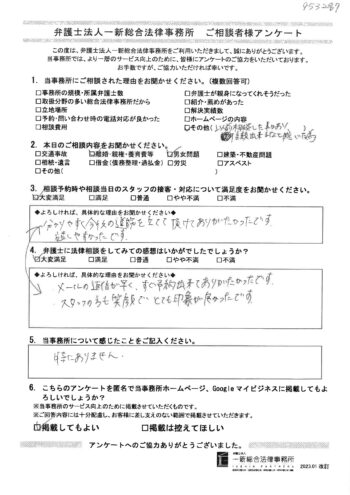 弁護士法人一新総合法律事務所　ご相談者様アンケート
この度は、弁護士法人一新総合法律事務所をご利用いただきまして、誠にありがとうございます。
当事務所では、より一層のサービス向上のために、皆様にアンケートのご協力をいただいております。
お手数ですが、ご協力いただければ幸いです。
1．当事務所にご相談された理由をお聞かせください。（複数回答可）
□事務所の規模・所属弁護士数　□弁護士が親身になってくれそうだった
□取扱分野の多い総合法律事務所だから　□紹介・薦めがあった
□立地場所　□解決実績数
□予約・問い合わせ時の電話対応が良かった　□ホームページの内容
□相談費用　□その他（
2．本日のご相談内容をお聞かせください。
□交通事故　□離婚・親権・養育費等　☑男女問題　□建築・不動産問題
□相続・遺言　□借金（債務整理・過払金）　□労災　□アスベスト
□その他（　）
3．相談予約時や相談当日のスタッフの接客・対応について満足度をお聞かせください。
☑大変満足　□満足　□普通　□やや不満　□不満
◆よろしければ、具体的な理由をお聞かせください◆
分かりやすく今後の道筋を立てて頂けてありがたかったです
話しやすかったです
4．弁護士に法律相談をしてみての感想はいかがでしたでしょうか？
☑大変満足　□満足　□普通　□やや不満　□不満
◆よろしければ、具体的な理由をお聞かせください◆
・メールの返信が早く、すぐ予約出来てありがたかったです
・スタッフの方も笑顔でとても印象が良かったです
5．当事務所について感じたことをご記入ください。
特にありません。
6．こちらのアンケートを匿名で当事務所ホームページ、Googleマイビジネスに掲載してもよ
ろしいでしょうか？
※当事務所のサービス向上のために掲載させていただくものです。
※ご回答内容には十分配慮し、お客様に差し支えのない範囲で掲載させていただきます。
☑掲載してもよい　□掲載は控えてほしい
アンケートへのご協力ありがとうございました。
弁護士法人
一新総合法律事務所
2023.01 改訂